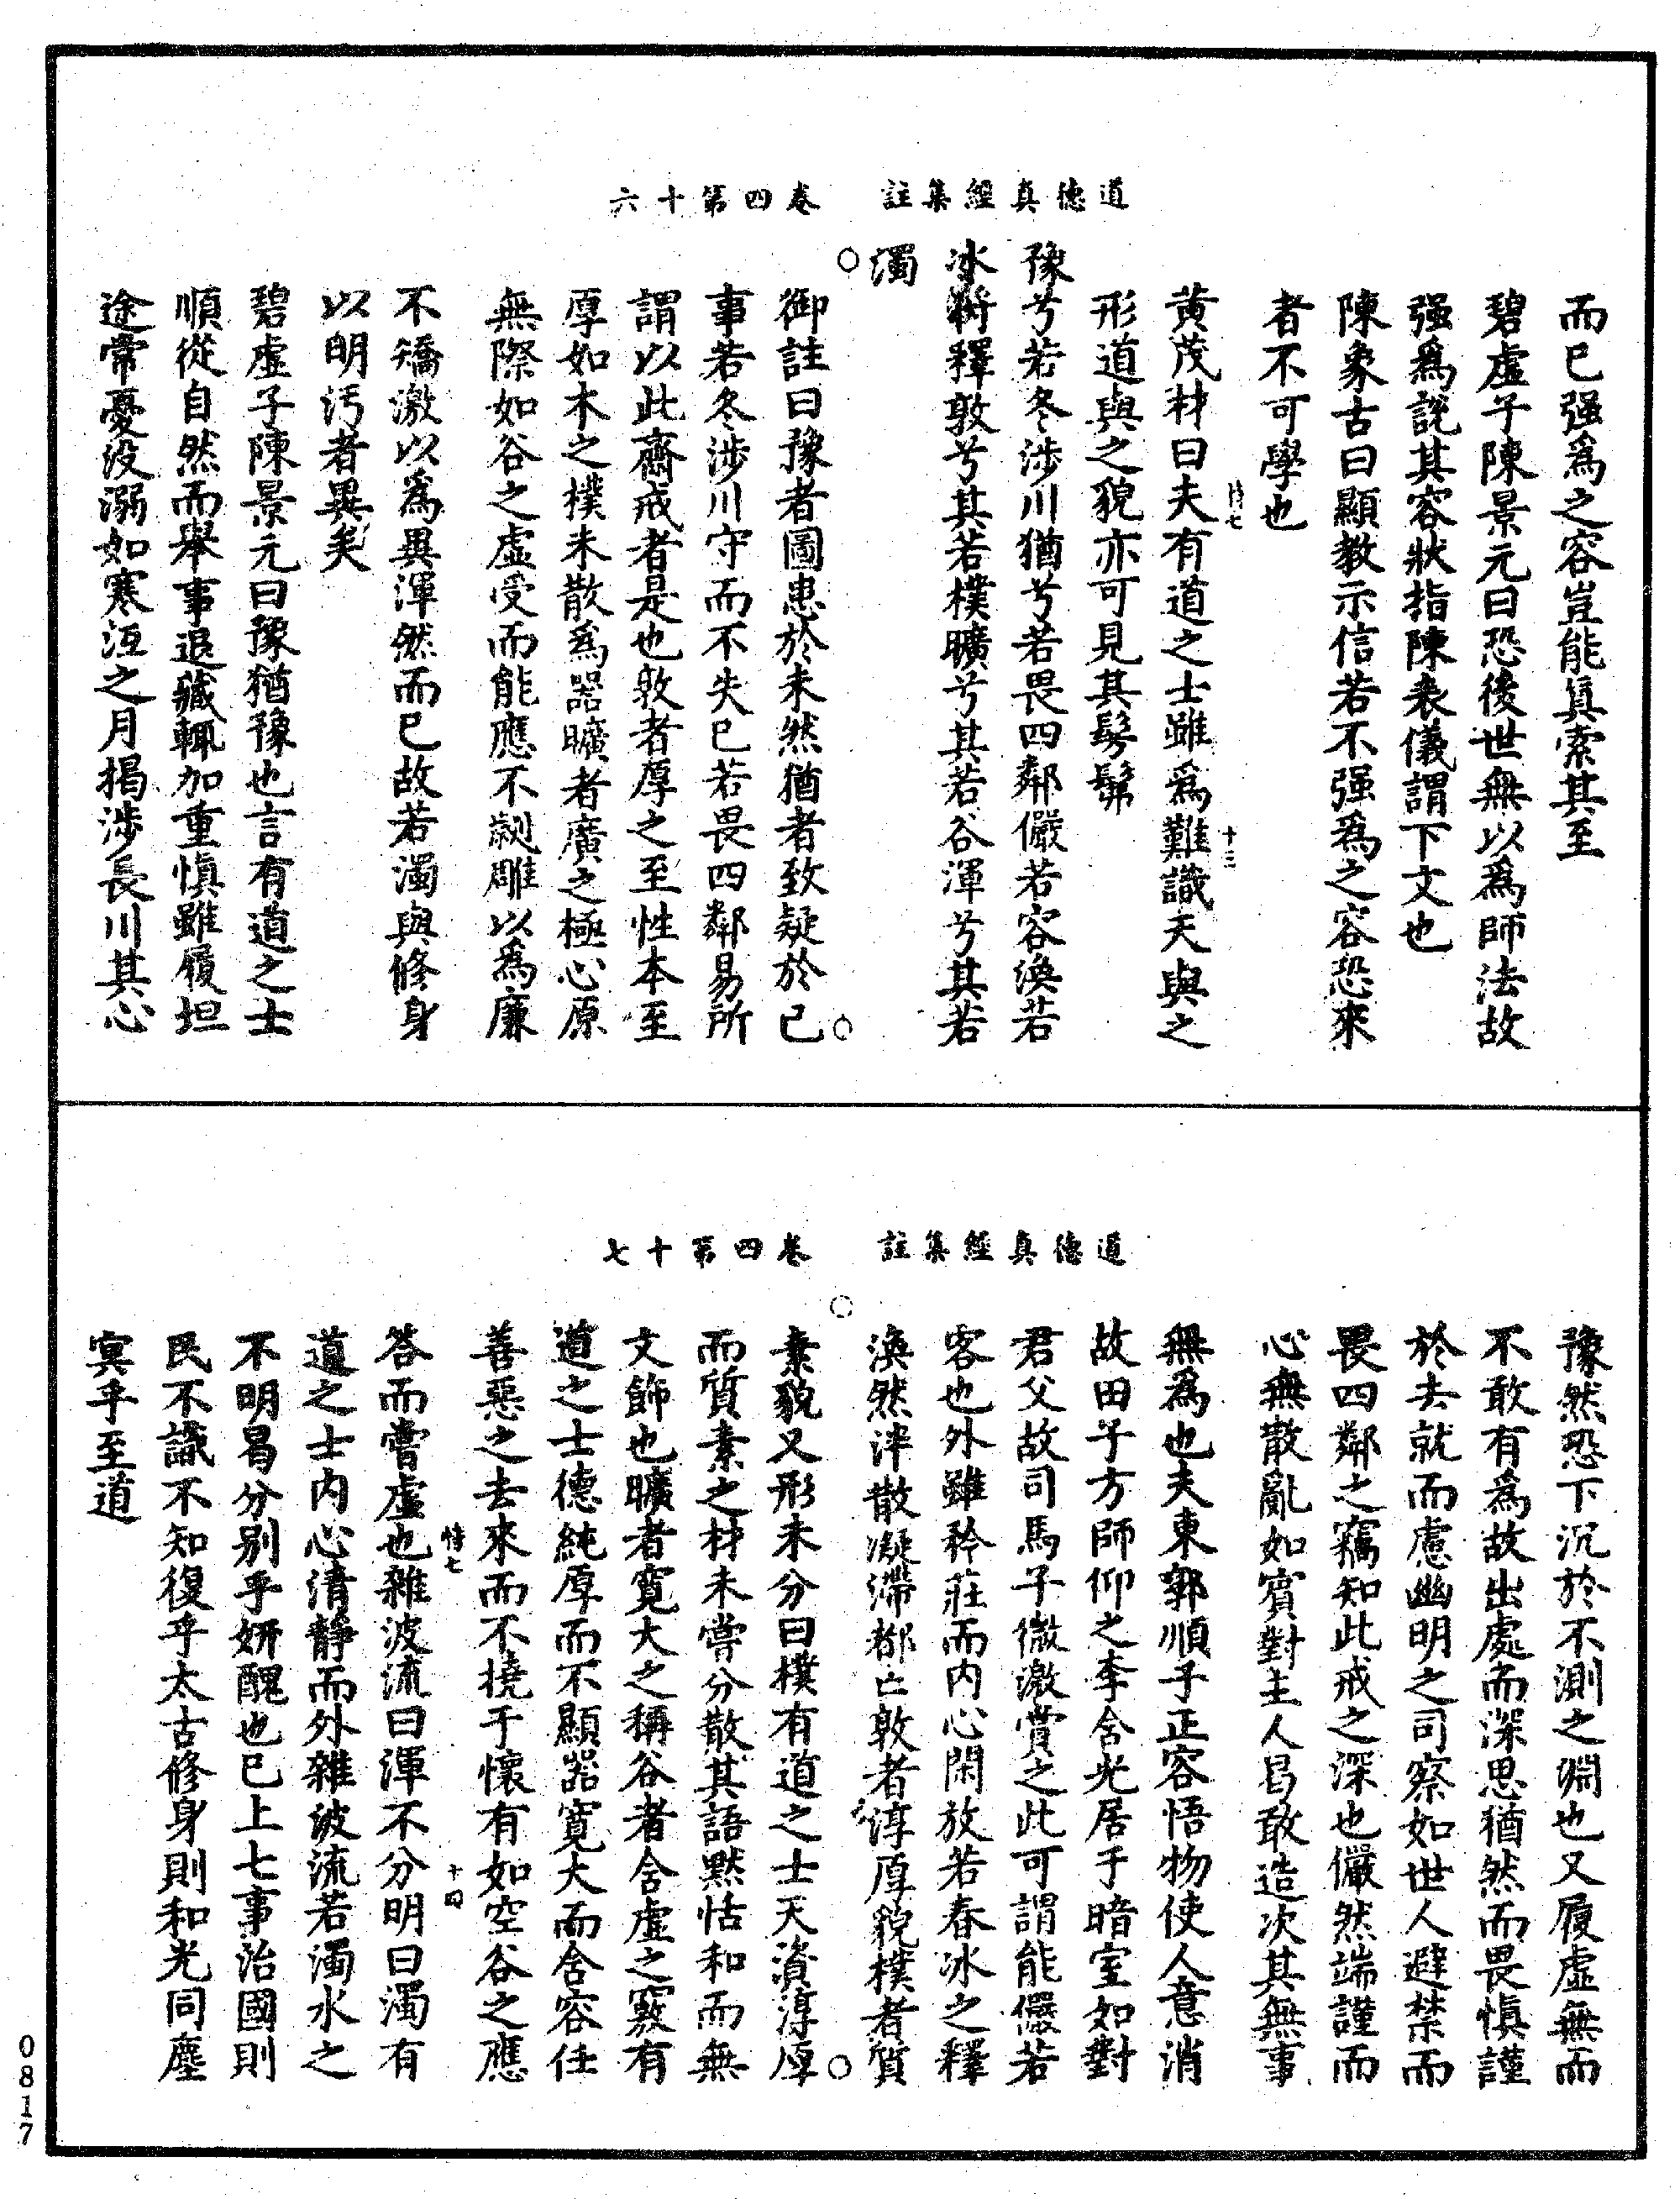 道德真經集註　卷四第十六
而已强爲之容豈能真索其至
碧虛子陳景元曰恐後世無以爲師法故
强爲説其容狀指陳表儀謂下文也
陳象古曰顯教示信若不强爲之容恐來
者不可學也
黄茂材曰夫有道之士雖爲難識天與之
形道與之貌亦可見其髣髴
豫兮若冬涉川猶兮若畏四鄰儼若容渙若
冰將釋敦兮其若樸曠兮其若谷渾兮其若
濁
御註曰豫者圖患於未然猶者致疑於已
事若冬涉川守而不失已若畏四鄰易所
謂以此齋戒者是也敦者厚之至性本至
厚如木之樸未散爲器曠者廣之極心原
無際如谷之虛受而能應不𠜂雕以爲廉
不矯激以爲異渾然而已故若濁與修身
以明汚者異矣
碧虛子陳景元曰豫猶豫也言有道之士
順從自然而舉事退藏輒加重慎雖履坦
途常憂没溺如寒沍之月揭涉長川其心
道德真經集註　卷四第十七
豫然恐下沉於不測之淵也又履虛無而
不敢有爲故出處而深思猶然而畏慎謹
於去就而慮幽明之司察如世人避禁而
畏四鄰之竊知此戒之深也儼然端謹而
心無散亂如賓對主人曷敢造次其無事
無爲也夫東郭順子正容悟物使人意消
故田子方師仰之李含光居于暗室如對
君父故司馬子微激賞之此可謂能儼若
客也外雖矜莊而内心閑放若春冰之釋
渙然泮散凝滯都亡敦者淳厚貌樸者質
素貌又形未分曰樸有道之士天資淳厚
而質素之材未嘗分散其語黙恬和而無
文飾也曠者寛大之稱谷者含虛之竅有
道之士德純厚而不顯器寛大而含容任
善惡之去來而不撓于懷有如空谷之應
答而嘗虛也雜波流曰渾不分明曰濁有
道之士内心清静而外雜波流若濁水之
不明曷分别乎妍醜也已上七事治國則
民不識不知復乎太古修身則和光同塵
冥乎至道
0817